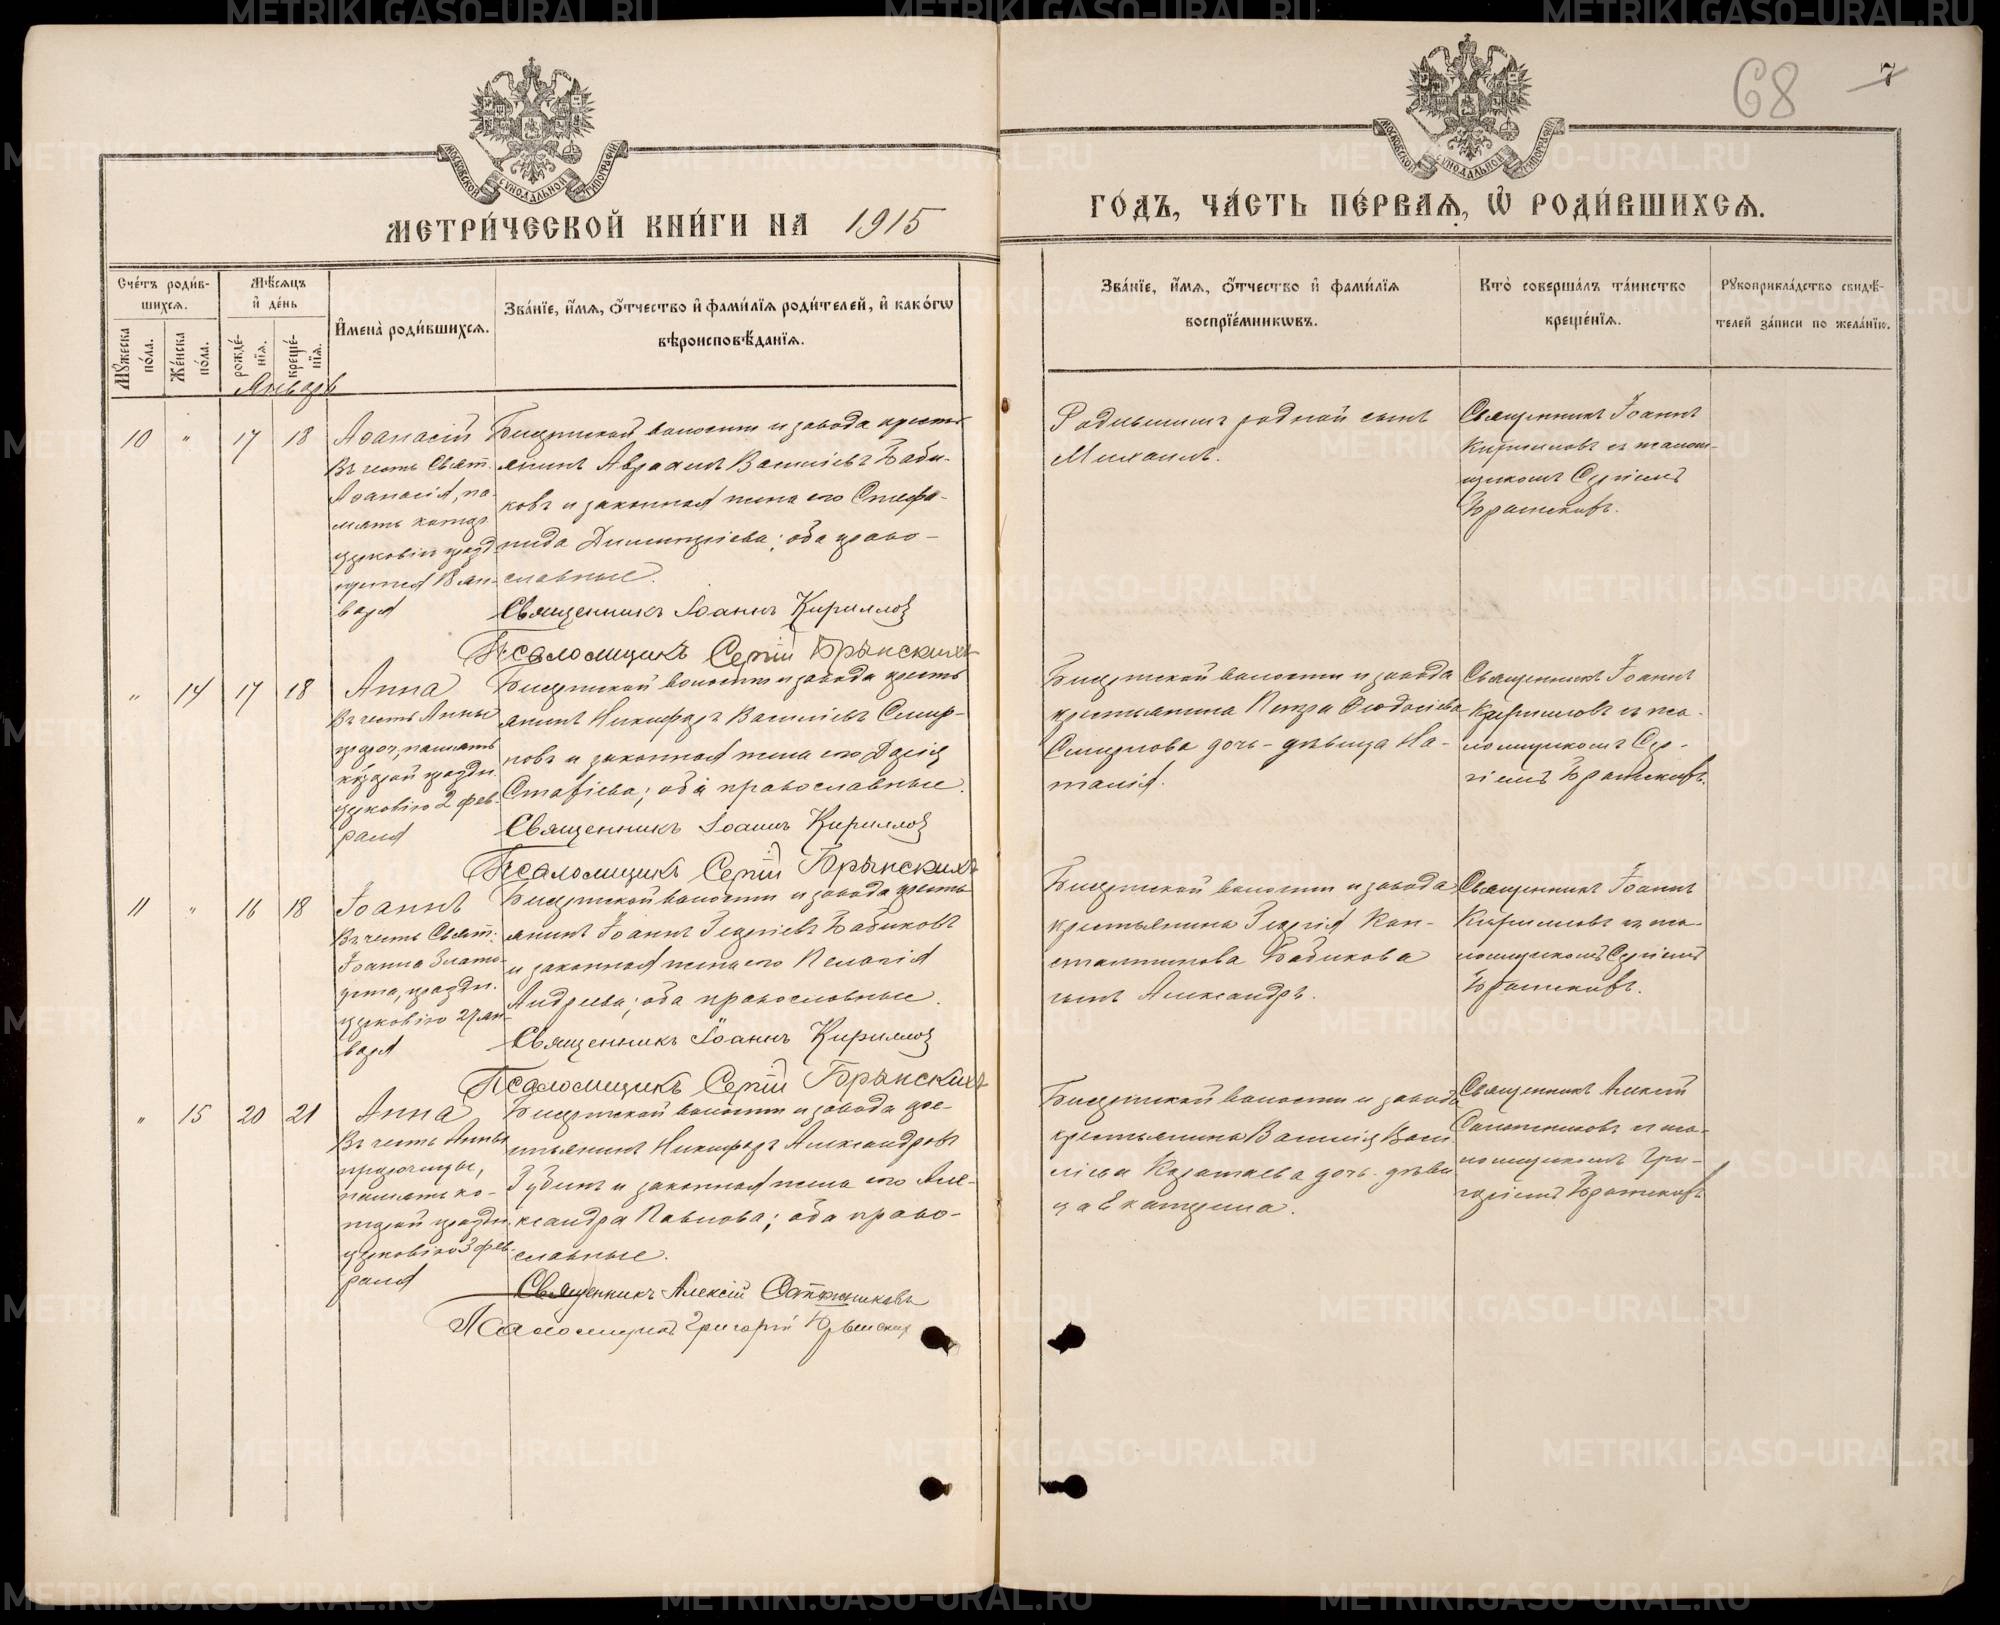 68
7
МОСКОВСКОЙ СѴНОДАЛЬНОЙ ТИПОГРАФІИ
МОСКОВСКОЙ СѴНОДАЛЬНОЙ ТИПОГРАФІИ
МЕТРИ́ЧЕСКОЙ КНИ́ГИ НА 1915
ГО́ДЪ, ЧА́СТЬ ПЕ́РВАѦ, Ѡ҆ РОДИ́ВШИХСѦ.
Сче́тъ роди́в-
шихсѧ.
Мꙋ́жеска по́ла.
Же́нска по́ла.
Мѣ́сѧцъ
и҆ де́нь
рожде́-
нїѧ.
креще́-
нїѧ.
И҆мена̀ роди́вшихсѧ.
Зва́нїе, и҆́мѧ, ѻ҆́тчество и҆ фами́лїѧ роди́телей, и҆ како́гѡ
вѣроисповѣ́данїѧ.
Зва́нїе, и҆́мѧ, ѻ҆́тчество и҆ фами́лїѧ
воспрїе́мникѡвъ.
Кто̀ соверша́лъ та́инство
креще́нїѧ.
Рꙋкоприкла́дство свидѣ́-
телей за́писи по жела́нїю.
Январь
10 " 17 18
Аѳанасій
Въ честь Свят.
Аѳанасія, па-
мять котор.
церковію празд-
нуется 18 ян-
варя
Бисертской волости и завода кресть-
янинъ Авраамъ Василіевъ Баби-
ковъ и законная жена его Стефа-
нида Димитріева; оба право-
славные.
Священникъ Іоаннъ Кирилловъ
Псаломщикъ Сергій Брынскихъ
Родившимъ родной сынъ
Михаилъ.
Священникъ Іоаннъ
Кирилловъ съ псалом-
щикомъ Сергіемъ
" 14 17 18
Анна
Въ честь Анны
прор., память
которой праздн.
церковію 2 фев-
раля
Бисертской волости и завода кресть-
янинъ Никифоръ Василіевъ Смир-
новъ и законная жена его Дарія
оба православные.
Священникъ Іоаннъ Кирилловъ
Псаломщикъ Сергій Брынскихъ
Бисертской волости и завода
крестьянина Петра Ѳеодосіева
Смирнова дочь-дѣвица На-
талія.
Священникъ Іоаннъ
Кирилловъ съ пса-
ломщикомъ Сер-
гіемъ
11 " 16 18
Іоаннъ
Въ честь Свят.
Іоанна Злато-
уста, праздн.
церковію 27 ян-
варя
Бисертской волости и завода кресть-
янинъ Іоаннъ Георгіевъ Бабиковъ
и законная жена его Пелагія
Андреева; оба православные.
Священникъ Іоаннъ Кирилловъ
Псаломщикъ Сергій Брынскихъ
Бисертской волости и завода
крестьянина Георгія Кон-
стантинова Бабикова
сынъ Александръ.
Священникъ Іоаннъ
Кирилловъ съ пса-
ломщикомъ Сергіемъ
" 15 20 21
Анна
Въ честь Анны
пророчицы,
память ко-
торой праздн.
церковію 3 фев-
раля
Бисертской волости и завода кре-
стьянинъ Никифоръ Александровъ
и законная жена его Але-
ксандра Павлова; оба право-
славные.
Священникъ Алексій
Псаломщикъ Григорій
Бисертской волости и завода
крестьянина Василія Васи-
ліева дочь-дѣви-
ца Екатерина.
Священникъ Алексій
съ пса-
ломщикомъ Гри-
горіемъ
METRIKI.GASO-URAL.RU